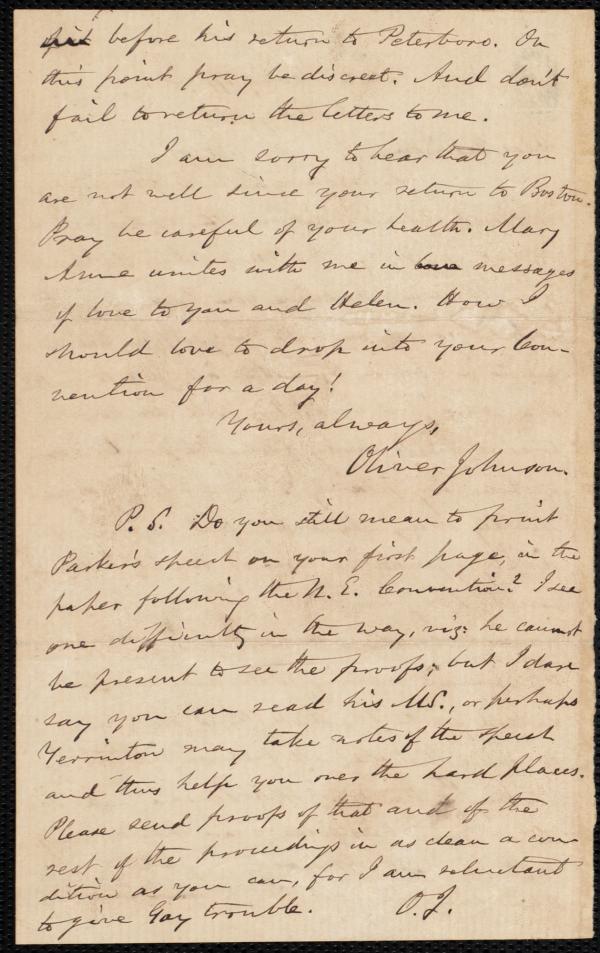 before his return to Peterboro. On
this point pray be discreet. And don't
fail to return the letters to me.
I am sorry to hear that you
are not well since your return to Boston.
Pray be careful of your health. Mary
Anne unites with me in love messages
of love to you and Helen. How I
should love to drop into your Con-
vention for a day!
Yours, always,
Oliver Johnson.
P. S. Do you still mean to print
Parker's speech on your first page, in the
paper following the N. E. Convention? I see
one difficulty in the way, viz: he cannot
be present to see the proofs; but I dare
say you can read his MS., or perhaps
Yerrinton may take notes of the speech
and thus help you over the hard places.
Please send proofs of that and of the
rest of the proceedings in as clean a con-
dition as you can, for I am reluctant
to give Gay trouble. O. J.